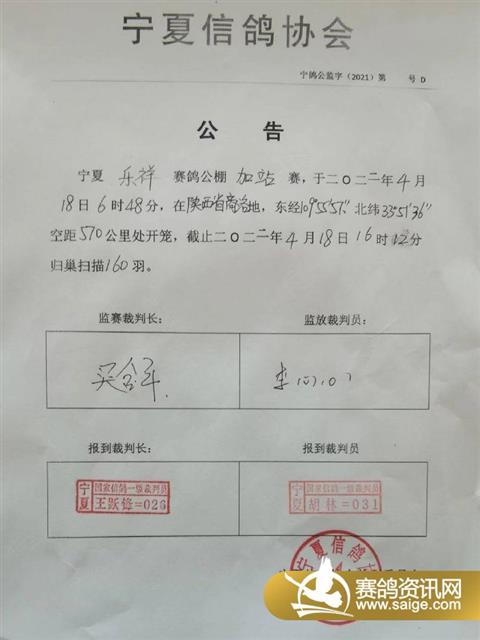 宁夏信鸽协会
宁鸽公监字（2021）第 号 D
公 告
宁夏 乐祥 赛鸽公棚 加站 赛，于二〇二二年4月
18日6时48分，在陕西省商洛地，东经109°55′51″北纬33°51′36″
空距570公里处开笼，截止二〇二二年4月18日16时12分
归巢扫描160羽。
监赛裁判长： 监放裁判员：
报到裁判长： 报到裁判员
宁夏 国家信鸽一级裁判员 王跃锋=026
宁夏 国家信鸽一级裁判员 胡林=031
宁夏信鸽
赛鸽资讯网
www.saige.com